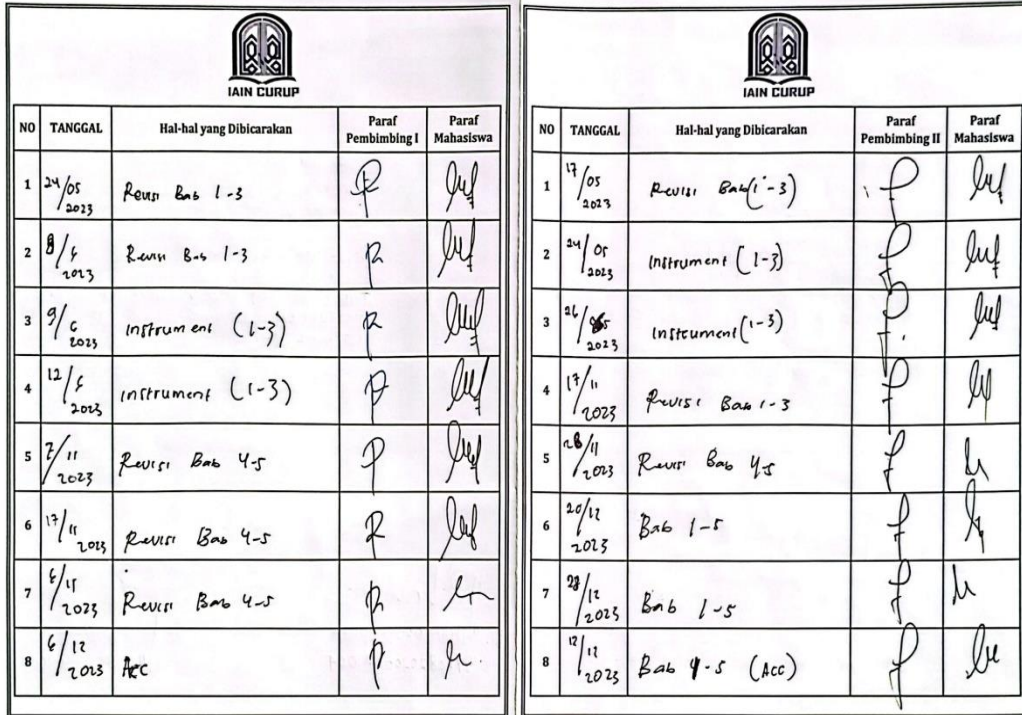 IAIN CURUP
NO TANGGAL Hal-hal yang Dibicarakan Paraf Pembimbing I Paraf Mahasiswa
1 24/05 2023 Revisi Bab 1-3
2 2023 Revisi Bab 1-3
3 9/6 2023 instrument (1-3)
4 12/6 2023 instrument (1-3)
5 7/11 2023 Revisi Bab 4-5
6 17/11 2023 Revisi Bab 4-5
7 2023 Revisi Bab 4-5
8 6/12 2023 Acc
IAIN CURUP
NO TANGGAL Hal-hal yang Dibicarakan Paraf Pembimbing II Paraf Mahasiswa
1 17/05 2023 Revisi Bab (1-3)
2 24/05 2023 instrument (1-3)
3 26/05 2023 instrument (1-3)
4 17/11 2023 Revisi Bab 1-3
5 28/11 2023 Revisi Bab 4-5
6 20/12 2023 Bab 1-5
7 28/12 2023 Bab 1-5
8 12/12 2023 Bab 4-5 (Acc)